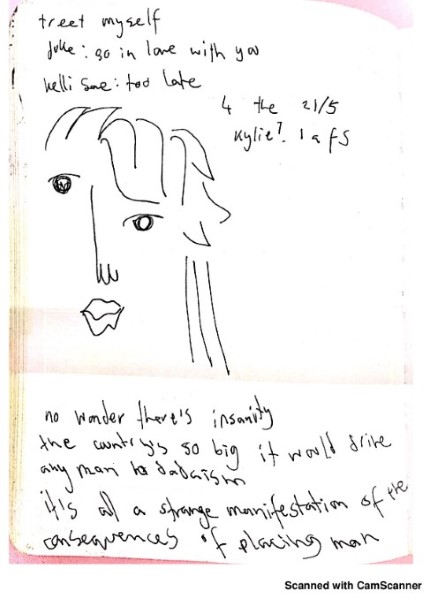 treet myself
duke: so in love with you
kelli sae: too late
4 the 21/5
Kylie?
no wonder there's insanity
the country's so big it would drive
any man to dadaism
it's all a strange manifestation of the
consequences of placing man
Scanned with CamScanner